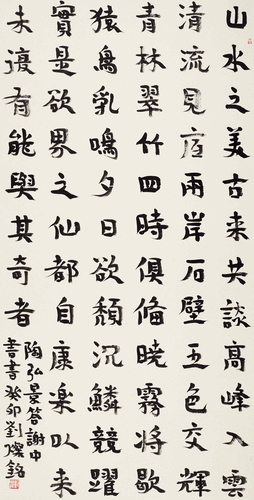 山水之美古来共談高峰入雲
清流見底兩岸石壁五色交輝
青林翠竹四時俱俻曉霧將歇
猿鳥乱鳴夕日欲頹沉鱗競躍
實是欲界之仙都自康樂以来
未復有能與其奇者
陶弘景答謝中
書書癸卯劉燦銘